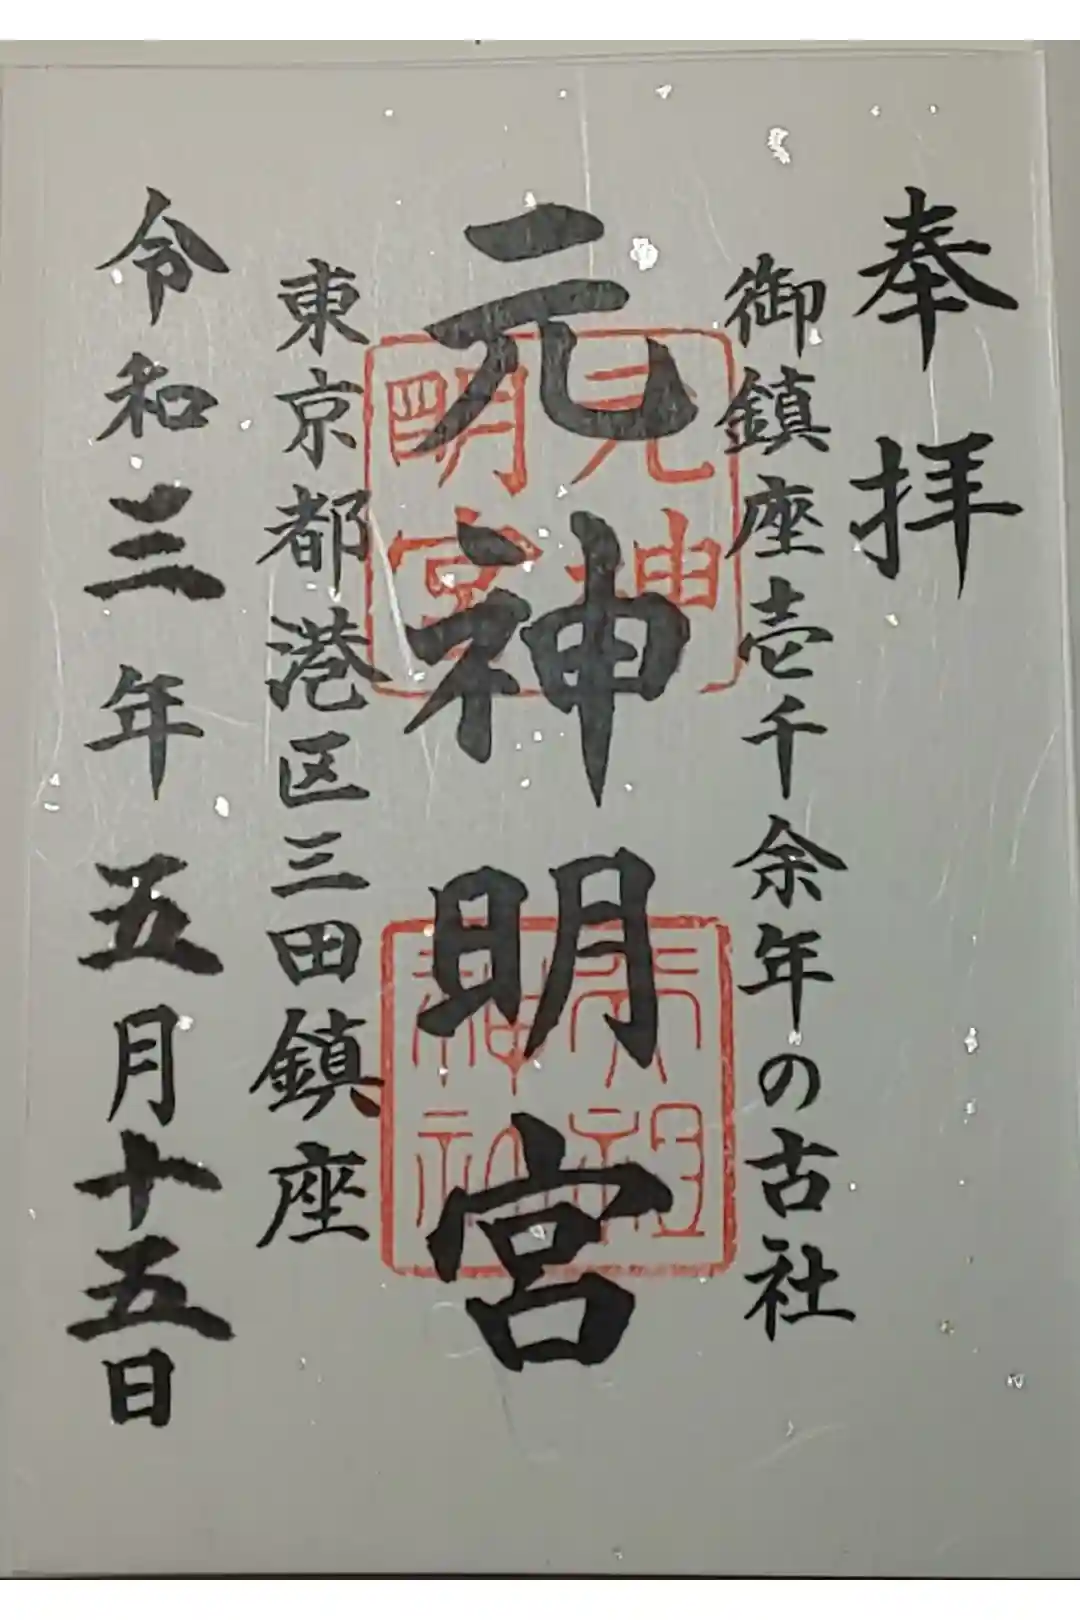 奉拝
御鎮座壱千余年の古社
元神明宮
元神明宮
天祖神社
東京都港区三田鎮座
令和三年五月十五日